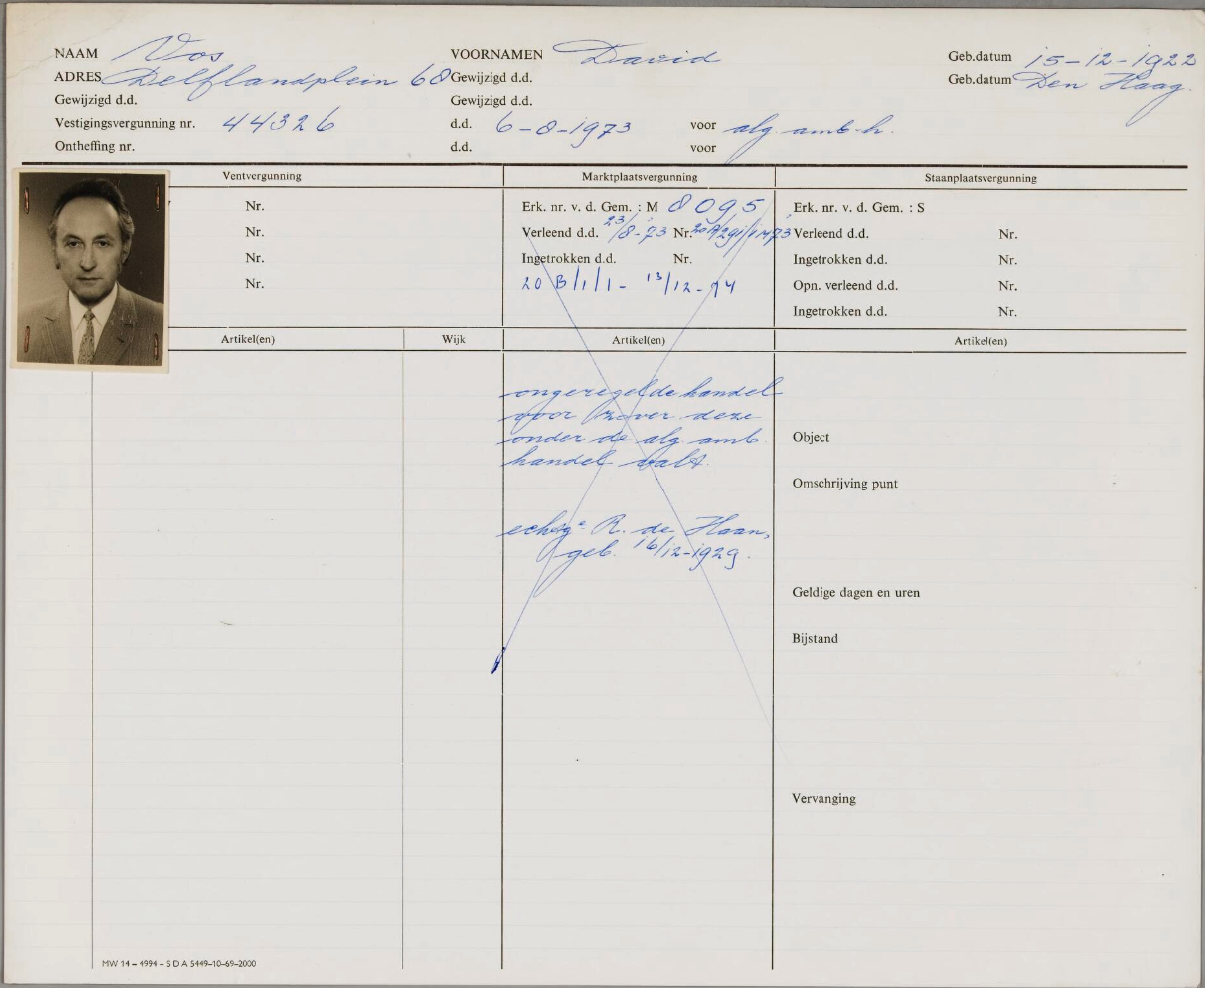 NAAM Vos VOORNAMEN David Geb.datum 15-12-1922
ADRES Delflandplein 68 Gewijzigd d.d. Geb.datum Den Haag.
Gewijzigd d.d. Gewijzigd d.d.
Vestigingsvergunning nr. 44326 d.d. 6-8-1973 voor alg. amb. h.
Ontheffing nr. d.d. voor
Ventvergunning Marktplaatsvergunning Staanplaatsvergunning
Nr. Erk. nr. v. d. Gem. : M 8095 Erk. nr. v. d. Gem. : S
Nr. Verleend d.d. 23/8-'73 Nr. Verleend d.d. Nr.
Nr. Ingetrokken d.d. Nr. Ingetrokken d.d. Nr.
Nr. 20 B/1/1- 13/12-74 Opn. verleend d.d. Nr.
Ingetrokken d.d. Nr.
Artikel(en) Wijk Artikel(en) Artikel(en)
ongeregelde handel
voor zover deze
onder de alg. amb. Object
handel valt.
Omschrijving punt
echtge R. de Haan,
geb. 16/12-1929.
Geldige dagen en uren
Bijstand
Vervanging
MW 14 - 4994 - S D A 5449-10-69-2000